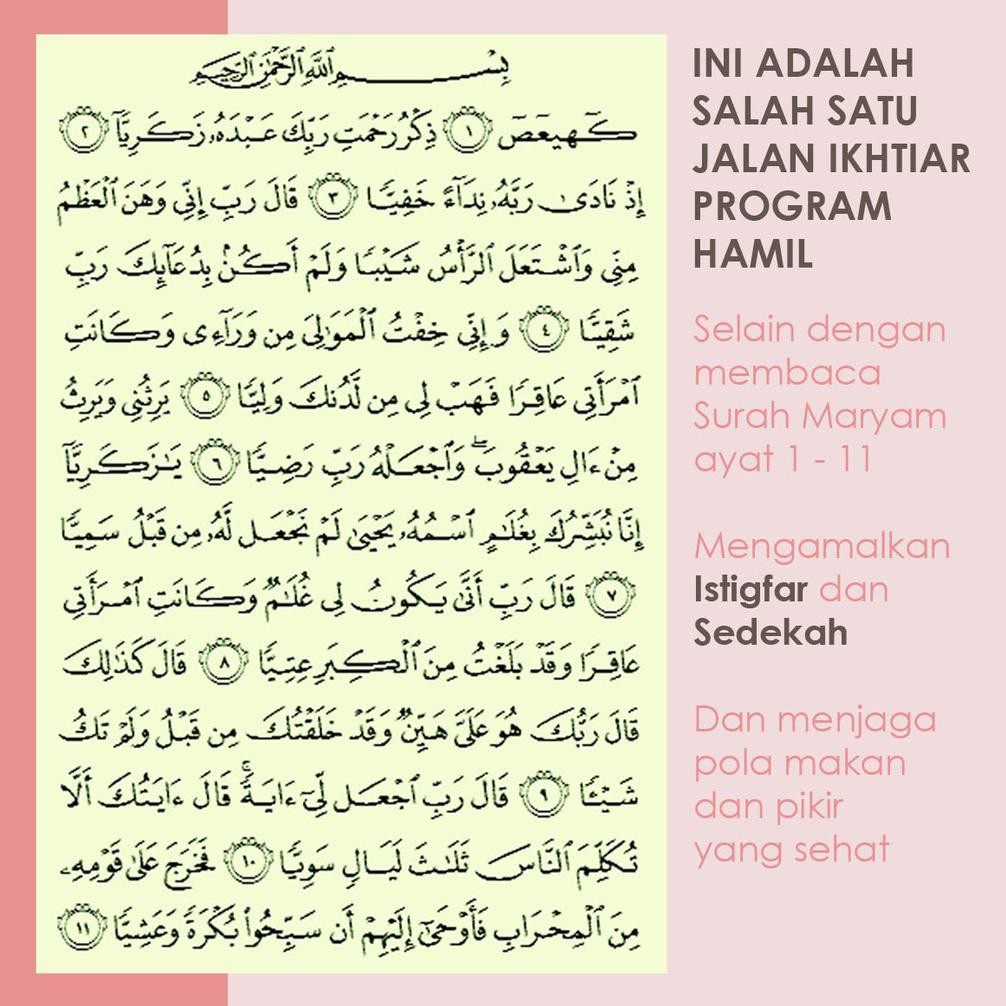 بِسْمِ اللَّهِ الرَّحْمَٰنِ الرَّحِيمِ
كٓهيعٓصٓ ١ ذِكْرُ رَحْمَتِ رَبِّكَ عَبْدَهُۥ زَكَرِيَّآ ٢
إِذْ نَادَىٰ رَبَّهُۥ نِدَآءً خَفِيًّا ٣ قَالَ رَبِّ إِنِّى وَهَنَ ٱلْعَظْمُ
مِنِّى وَٱشْتَعَلَ ٱلرَّأْسُ شَيْبًا وَلَمْ أَكُنۢ بِدُعَآئِكَ رَبِّ
شَقِيًّا ٤ وَإِنِّى خِفْتُ ٱلْمَوَٰلِىَ مِن وَرَآءِى وَكَانَتِ
ٱمْرَأَتِى عَاقِرًا فَهَبْ لِى مِن لَّدُنكَ وَلِيًّا ٥ يَرِثُنِى وَيَرِثُ
مِنْ ءَالِ يَعْقُوبَ ۖ وَٱجْعَلْهُ رَبِّ رَضِيًّا ٦ يَٰزَكَرِيَّآ
إِنَّا نُبَشِّرُكَ بِغُلَٰمٍ ٱسْمُهُۥ يَحْيَىٰ لَمْ نَجْعَل لَّهُۥ مِن قَبْلُ سَمِيًّا
٧ قَالَ رَبِّ أَنَّىٰ يَكُونُ لِى غُلَٰمٌ وَكَانَتِ ٱمْرَأَتِى
عَاقِرًا وَقَدْ بَلَغْتُ مِنَ ٱلْكِبَرِ عِتِيًّا ٨ قَالَ كَذَٰلِكَ
قَالَ رَبُّكَ هُوَ عَلَىَّ هَيِّنٌ وَقَدْ خَلَقْتُكَ مِن قَبْلُ وَلَمْ تَكُ
شَيْـًٔا ٩ قَالَ رَبِّ ٱجْعَل لِّىٓ ءَايَةً ۚ قَالَ ءَايَتُكَ أَلَّا
تُكَلِّمَ ٱلنَّاسَ ثَلَٰثَ لَيَالٍ سَوِيًّا ١٠ فَخَرَجَ عَلَىٰ قَوْمِهِۦ
مِنَ ٱلْمِحْرَابِ فَأَوْحَىٰٓ إِلَيْهِمْ أَن سَبِّحُوا۟ بُكْرَةً وَعَشِيًّا ١١
INI ADALAH
SALAH SATU
JALAN IKHTIAR
PROGRAM
HAMIL
Selain dengan
membaca
Surah Maryam
ayat 1 - 11
Mengamalkan
Istigfar dan
Sedekah
Dan menjaga
pola makan
dan pikir
yang sehat